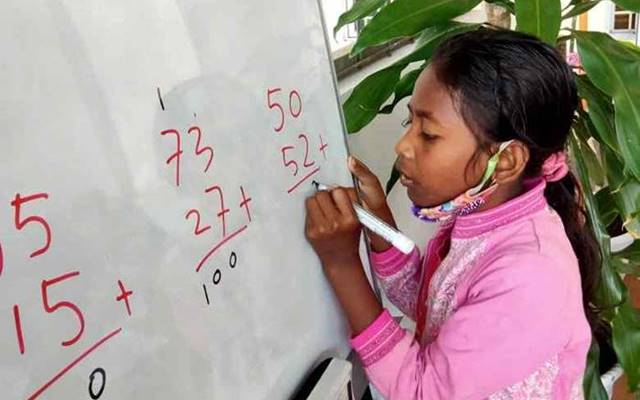 5
15 +
0
1
73
27 +
100
50
52 +